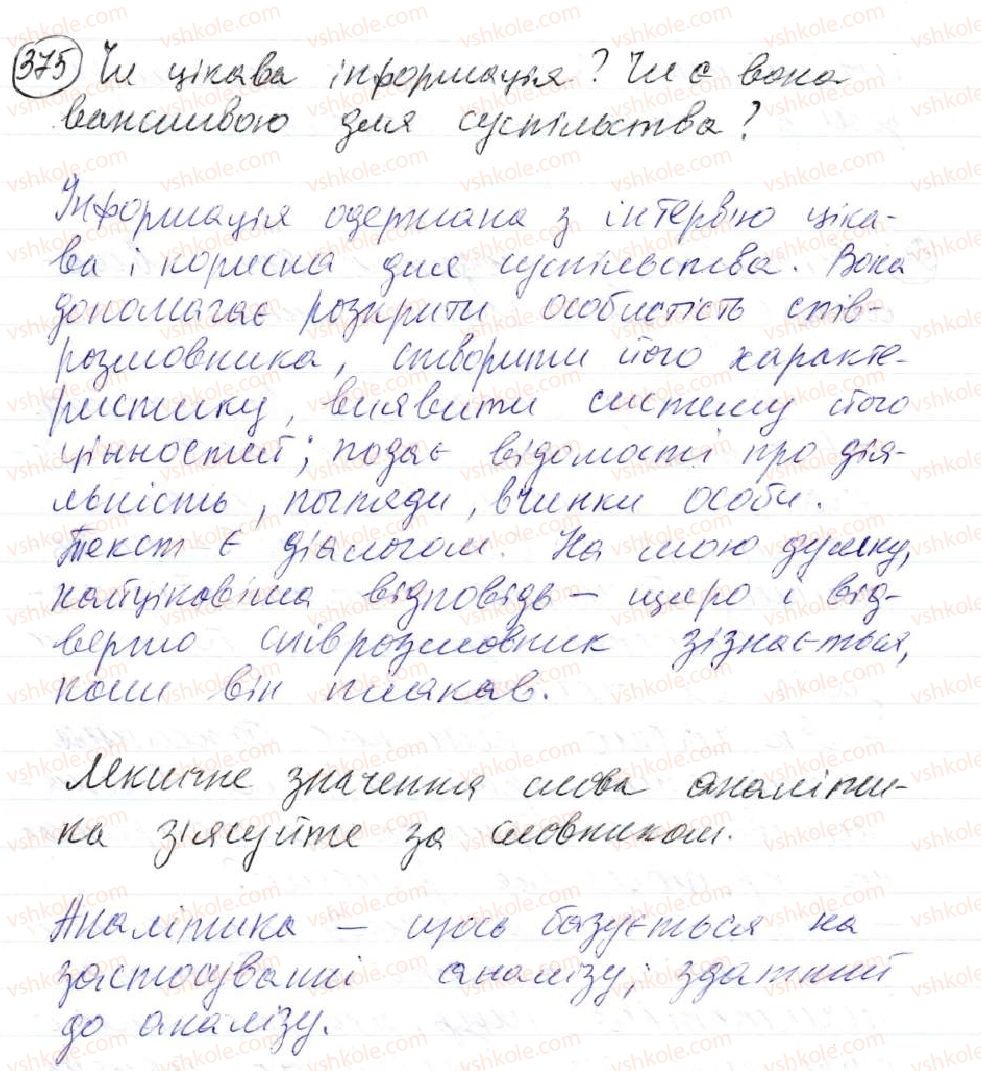 375 Чи цікава інформація? Чи є вона
важливою для суспільства?
Інформація одержана з інтерв'ю ціка-
ва і корисна для суспільства. Вона
допомагає розкрити особистість спів-
розмовника, створити його характе-
ристику, виявити систему його
цінностей; подає відомості про дія-
льність, погляди, вчинки особи.
Текст є діалогом. На мою думку,
найцікавіша відповідь - щиро і від-
верто співрозмовник зізнається,
коли він плакав.
Лексичне значення слова аналіти-
ка з'ясуйте за словником.
Аналітика - щось базується на
застосуванні аналізу; здатний
до аналізу.